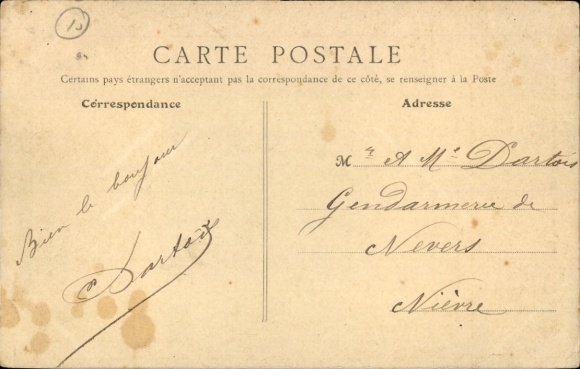 10
CARTE POSTALE
Certains pays étrangers n'acceptant pas la correspondance de ce côté, se renseigner à la Poste
Correspondance
Bien le bonjour
Dartois
Adresse
Mr A Me Dartois
Gendarmerie de
Nevers
Nièvre